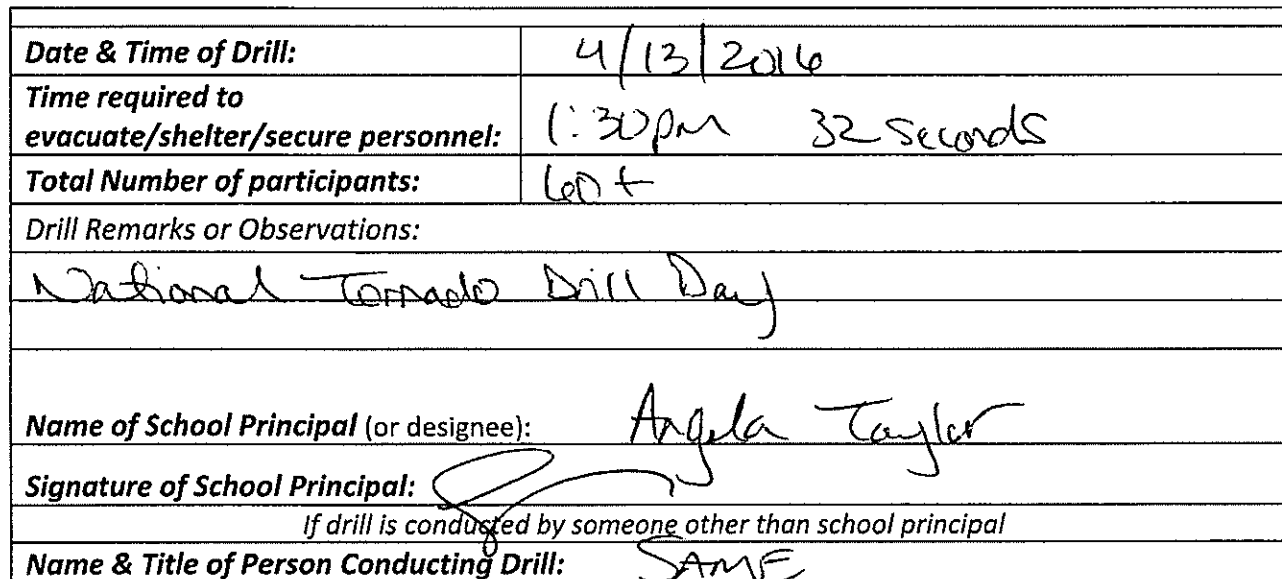 Date & Time of Drill: 4/13/2016
Time required to
evacuate/shelter/secure personnel: 1:30pm 32 Seconds
Total Number of participants: 60+
Drill Remarks or Observations:
National Tornado Drill Day
Name of School Principal (or designee): Angela Taylor
Signature of School Principal:
If drill is conducted by someone other than school principal
Name & Title of Person Conducting Drill: SAME